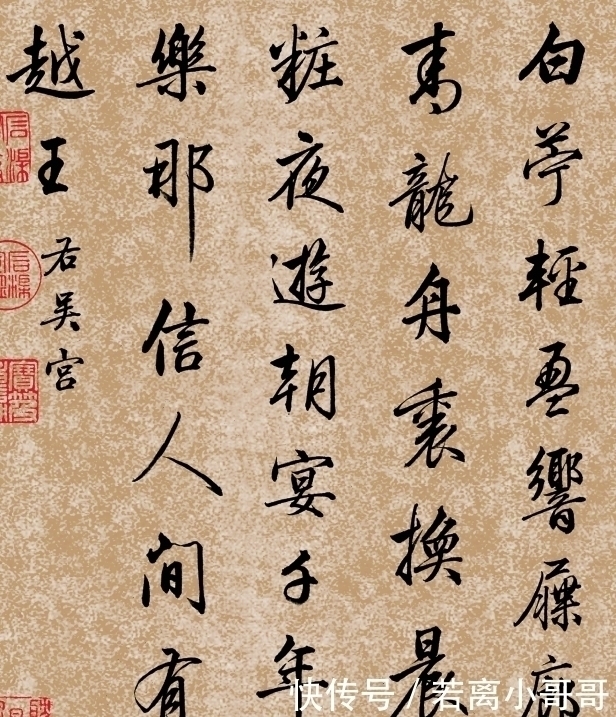 白苧輕盈響屧廊
青龍舟裏換晨
粧夜遊朝宴千年
樂那信人間有
越王
右吳宮
快传号 / 若离小哥哥